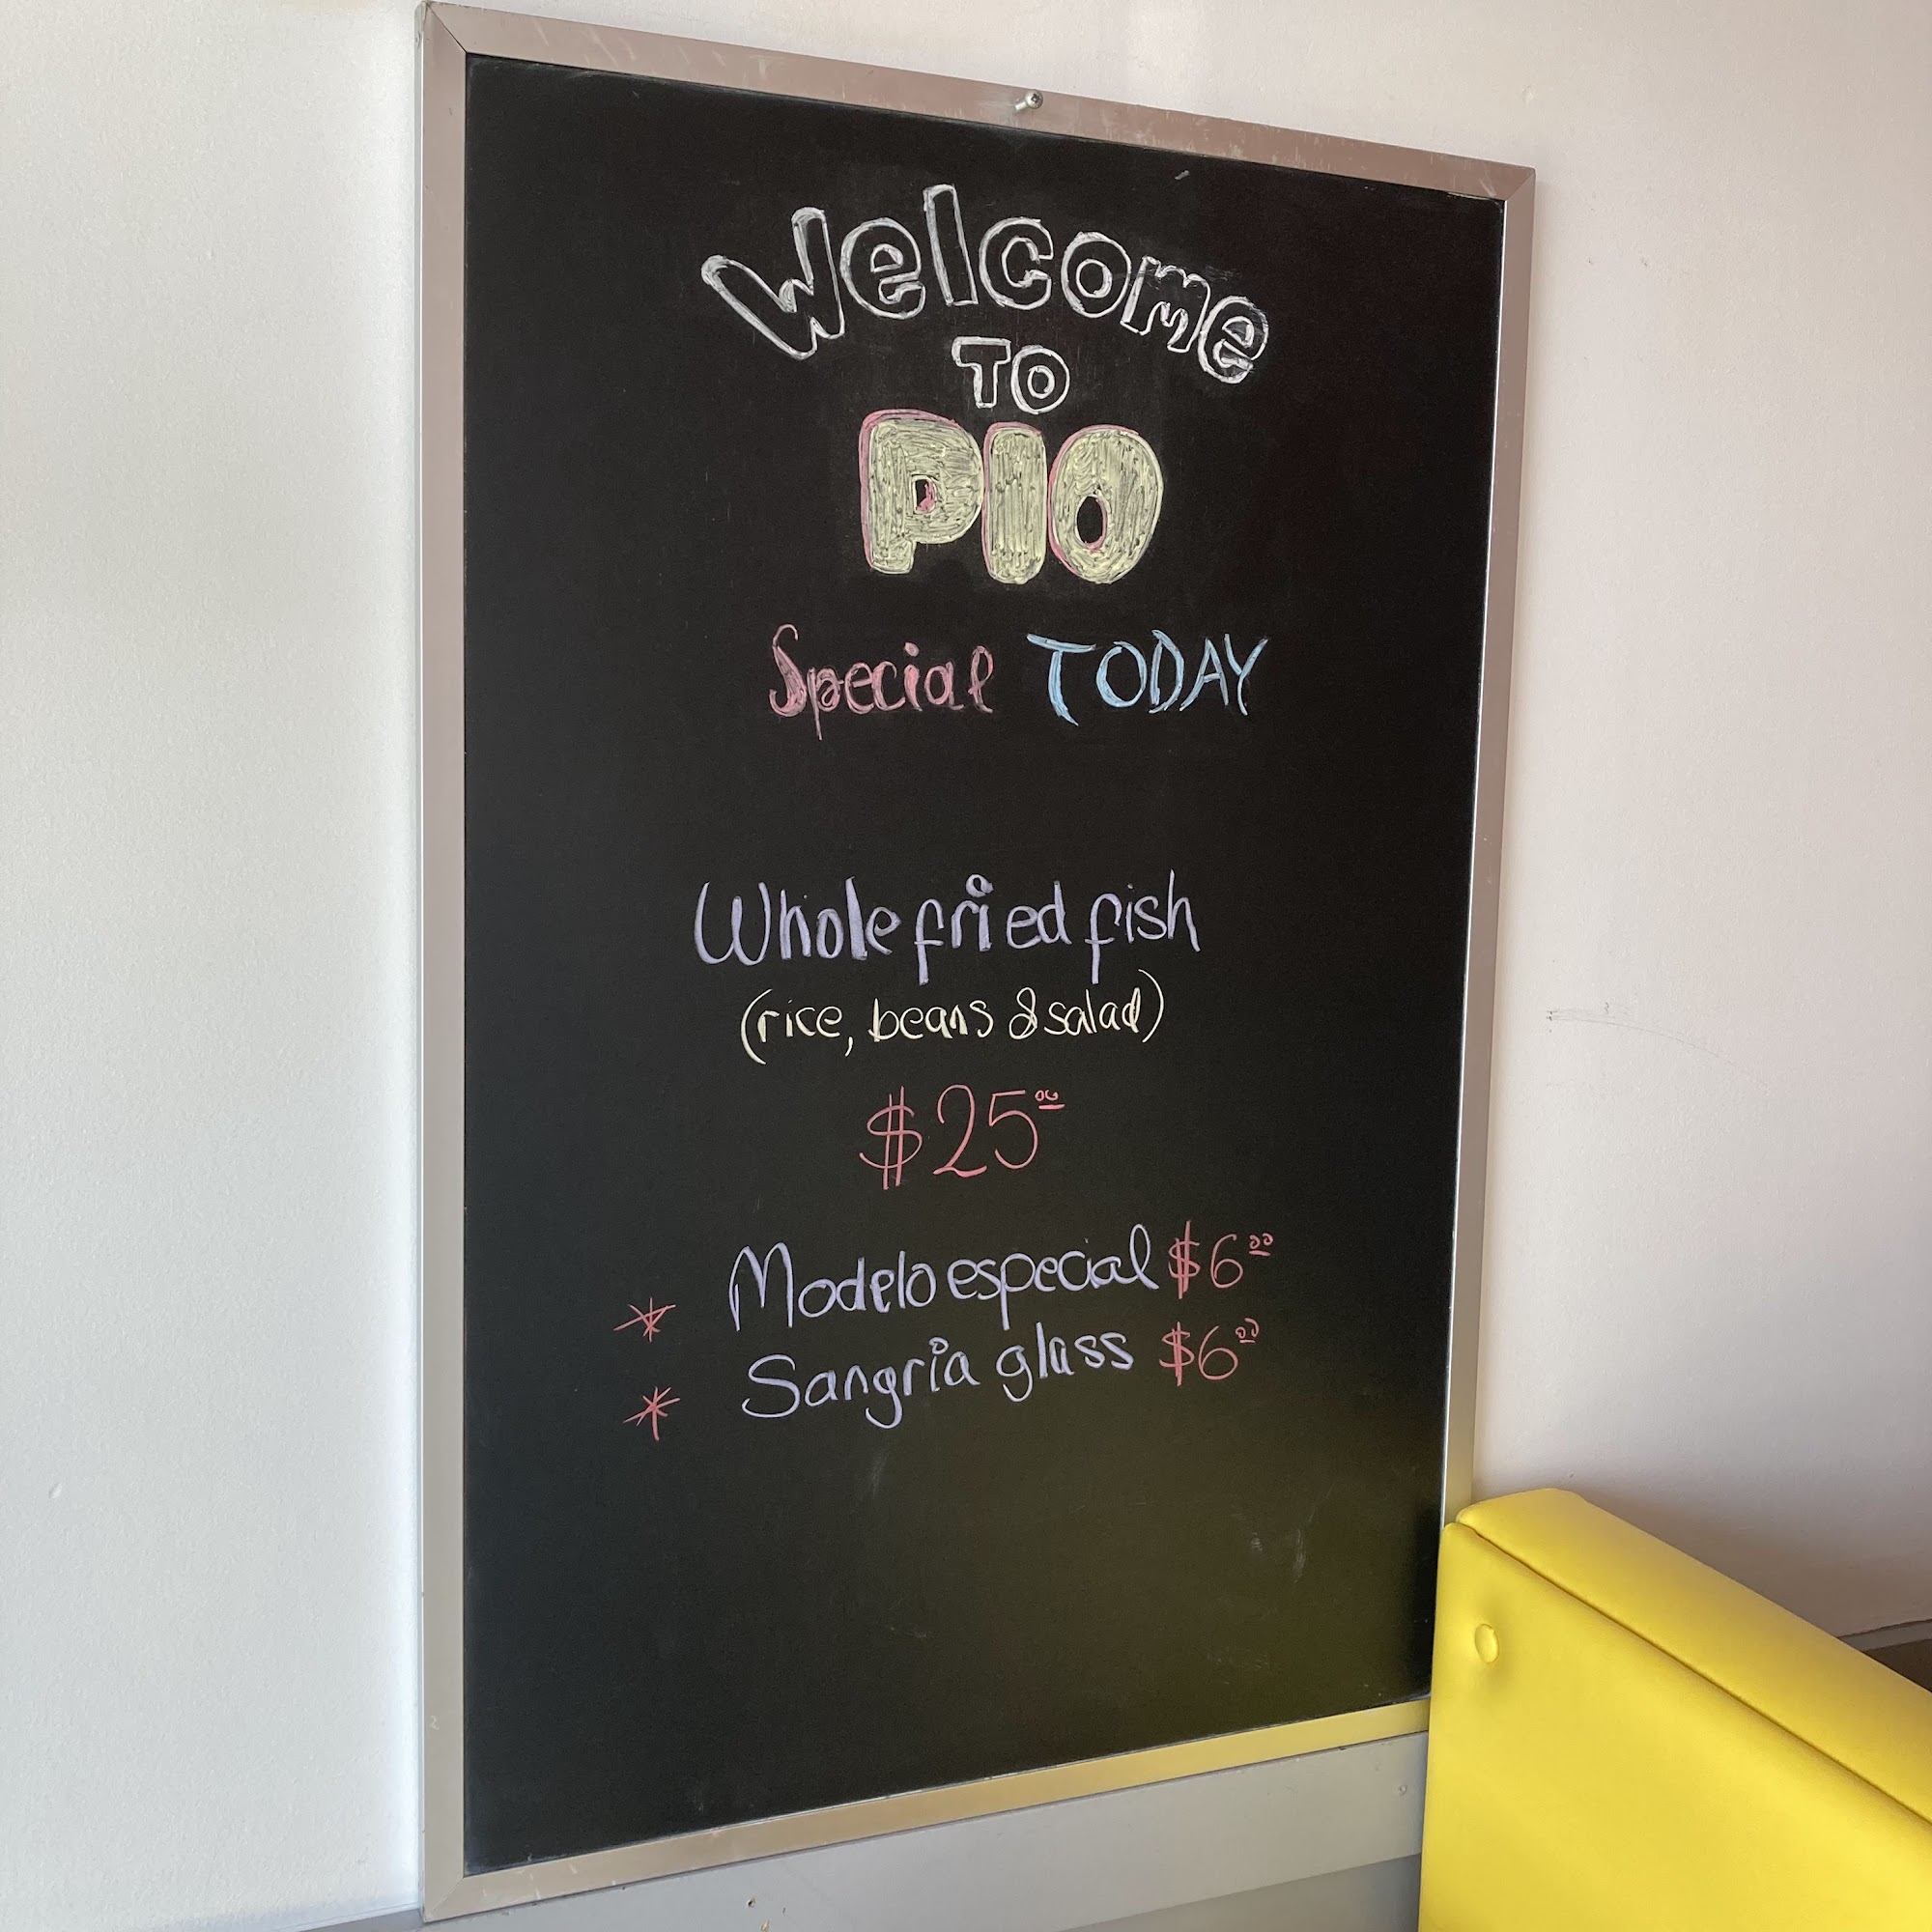 Welcome
TO
PIO
Special TODAY
Whole fried fish
(rice, beans & salad)
$25.00
* Modelo especial $6.00
* Sangria glass $6.00